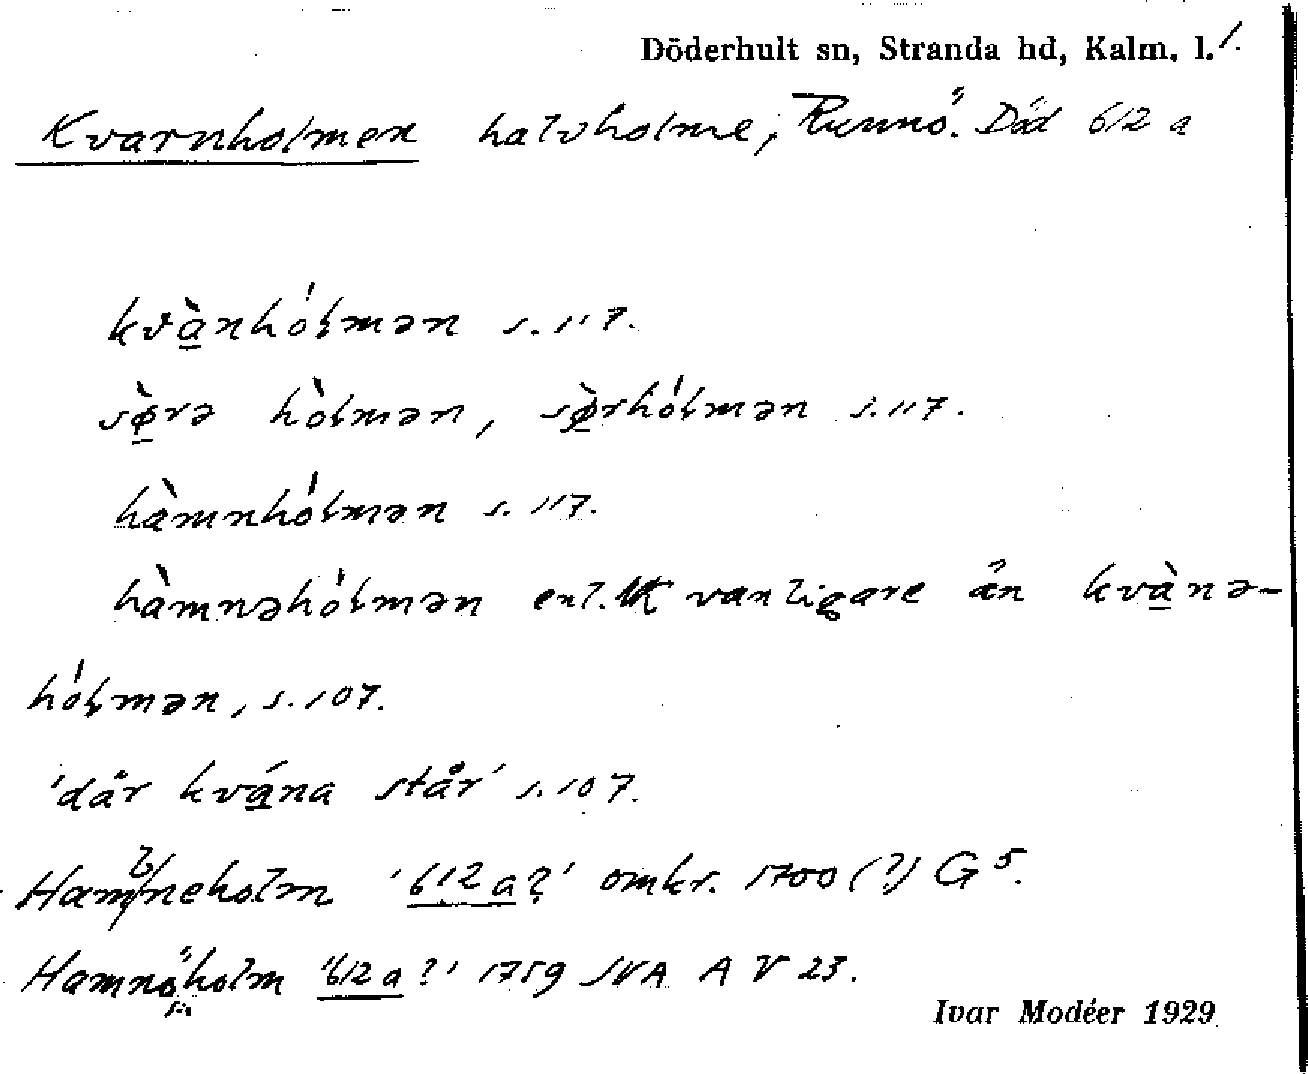 Döderhult sn, Stranda hd, Kalm. l. 1.
Kvarnholmen halvholme, Runnö. Död 612 a
kvànhóɫmən s. 117.
sø̀rə hòɫmən, sø̀rhóɫmən s. 117.
hàmnhóɫmən s. 117.
hàmnəhóɫmən enl. vanligare än kvànə-
hóɫmən, s. 107.
'där kvána står' s. 107.
Hamneholm '612 a?' omkr. 1700 (?) G 5.
Hamnöholm '612 a?' 1759 SVA A V 23.
Ivar Modéer 1929